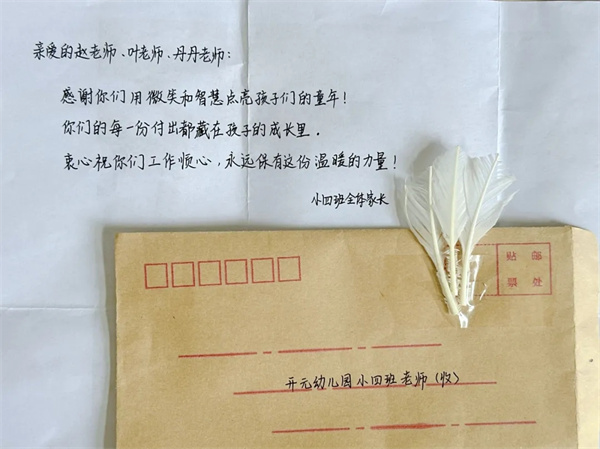 亲爱的赵老师、叶老师、丹丹老师:
感谢你们用微笑和智慧点亮孩子们的童年!
你们的每一份付出都藏在孩子的成长里.
衷心祝你们工作顺心,永远保有这份温暖的力量!
小四班全体家长
贴 邮
票 处
开元幼儿园小四班老师(收)